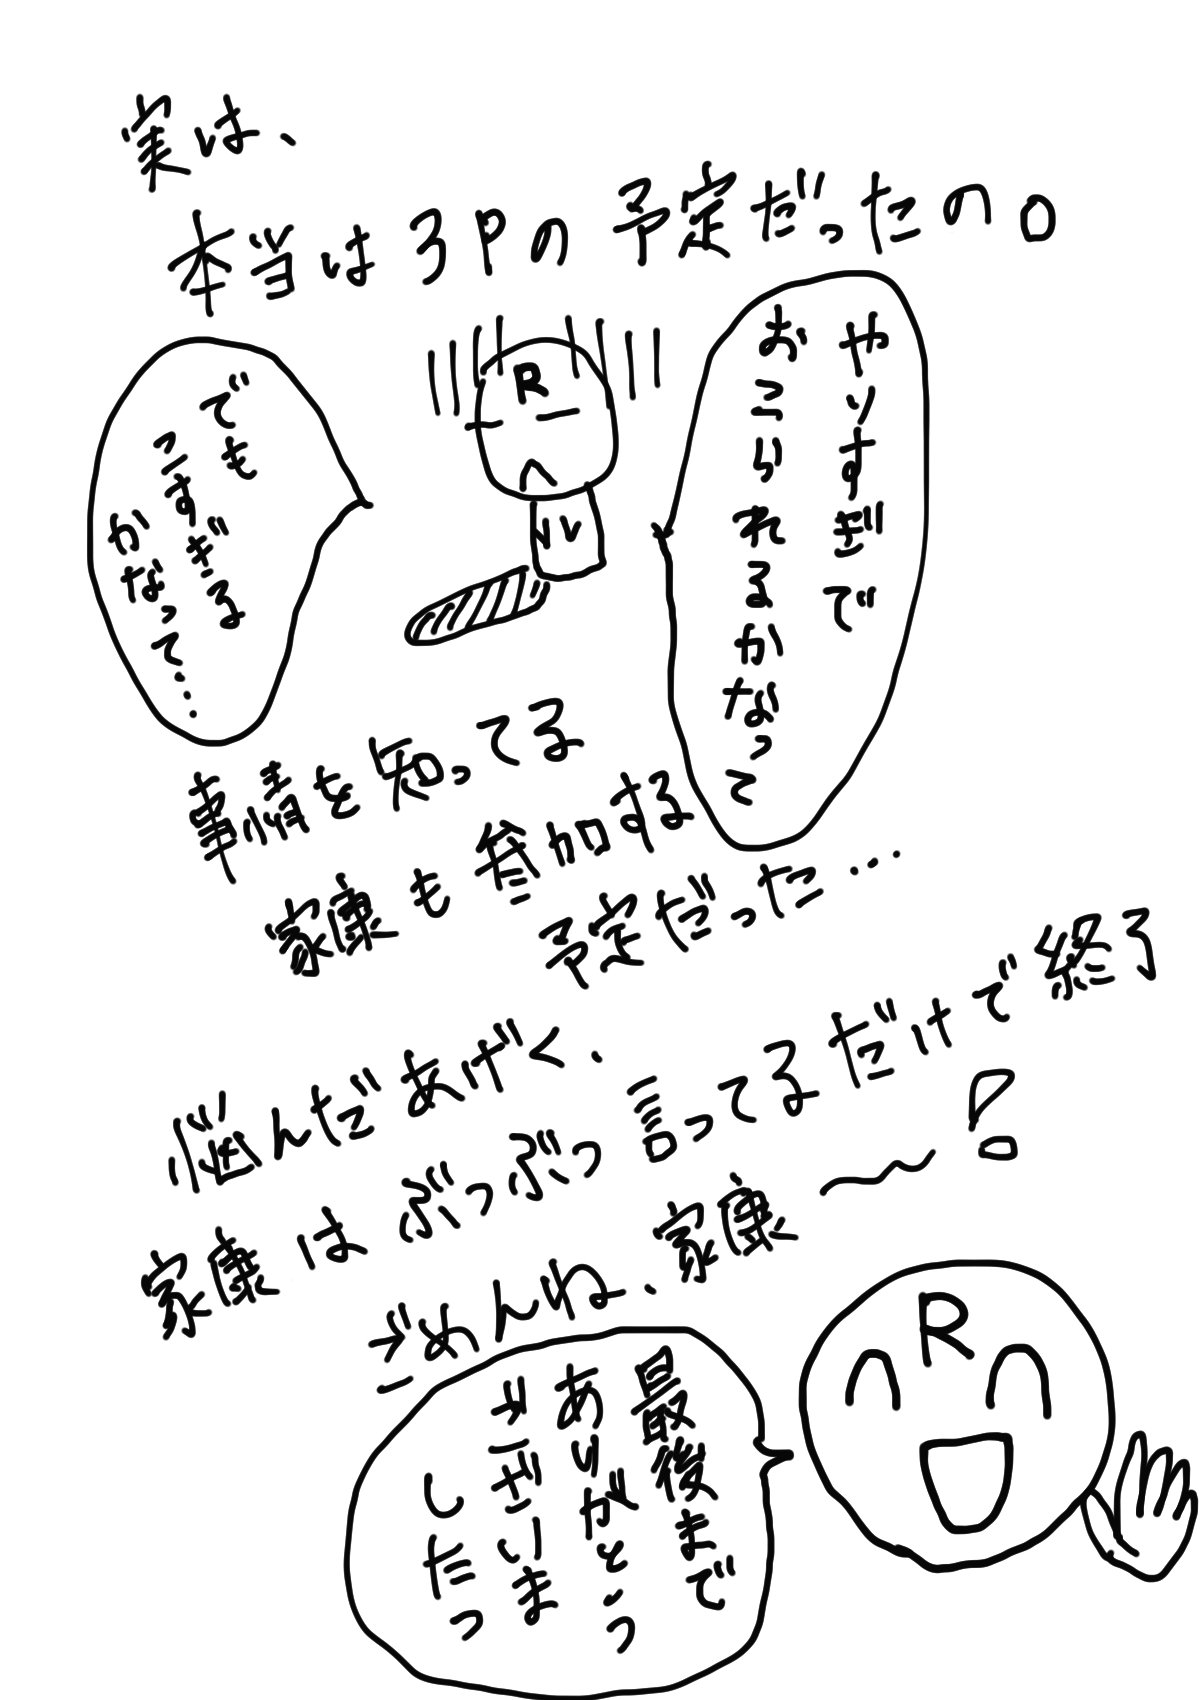 実は、
本当は3Pの予定だったの。
R
やりすぎで
おこられるかなって
でも
うすぎる
かなって…
事情を知ってる
家康も参加する
予定だった…
悩んだあげく、
家康はぶつぶつ言ってるだけで終了
ごめんね、家康〜!
R
最後まで
ありがとう
ございま
したっ